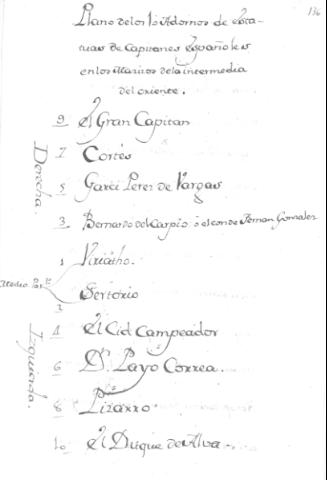 136
Plano de los 10 Adornos de esta-
tuas de Capitanes Españoles
en los Macizos de la intermedia
del oriente.
Derecha.
9 El Gran Capitan
7 Cortés
5 Garci Perez de Vargas
3 Bernardo del Carpio ó el conde Fernan Gonzalez
1 Viriatho.
Medio
2 Sertorio
Izquierda.
4 El Cid Campeador
6 Dn. Payo Correa.
8 Pizarro.
10 El Duque de Alva